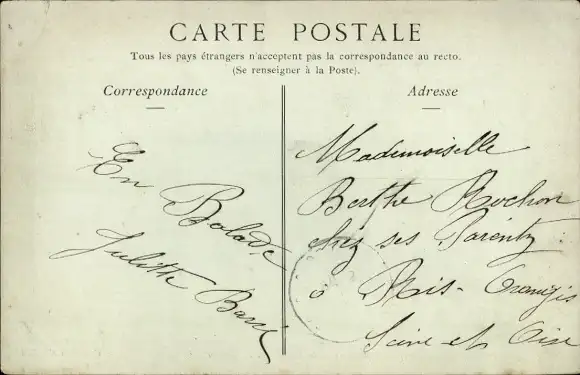 CARTE POSTALE
Tous les pays étrangers n'acceptent pas la correspondance au recto.
(Se renseigner à la Poste).
Correspondance
En Balade
Judith
Adresse
Mademoiselle
Berthe Rochon
chez ses Parents
à Ris-Orangis
Seine et Oise